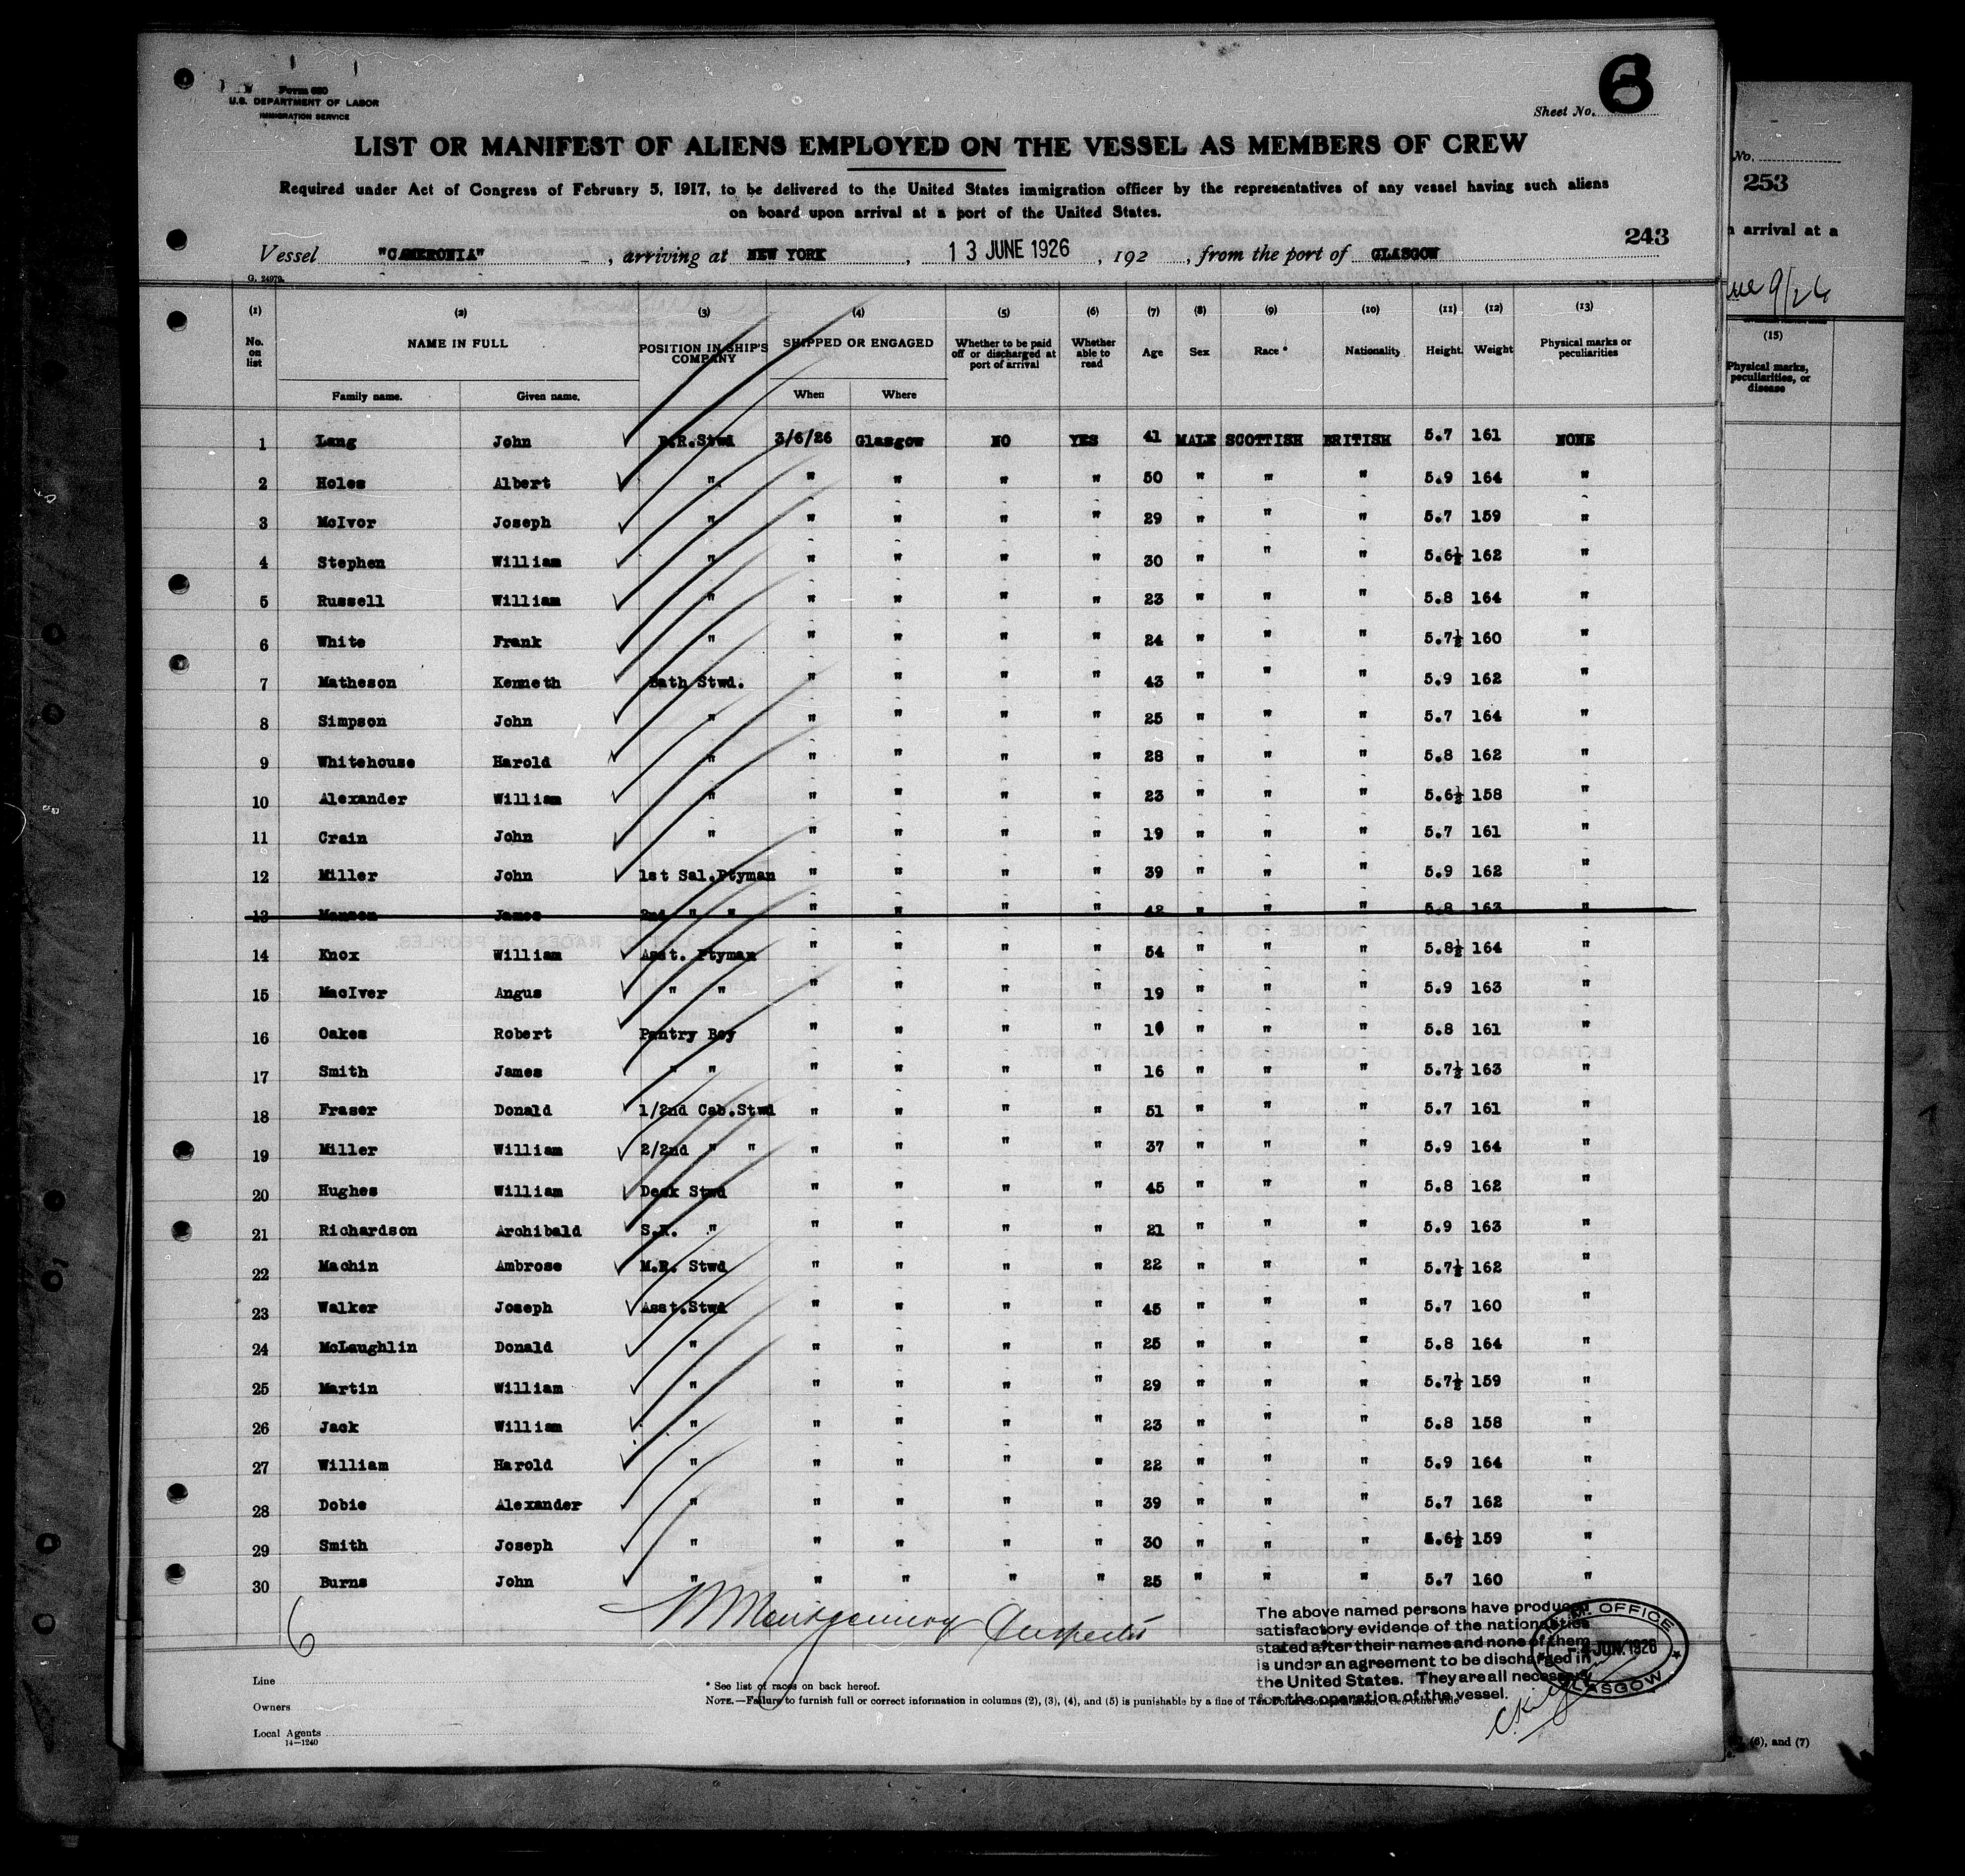 Form 680
U.S. DEPARTMENT OF LABOR
IMMIGRATION SERVICE
Sheet No. 6
LIST OR MANIFEST OF ALIENS EMPLOYED ON THE VESSEL AS MEMBERS OF CREW
Required under Act of Congress of February 5, 1917, to be delivered to the United States immigration officer by the representatives of any vessel having such aliens
on board upon arrival at a port of the United States.
243
Vessel "CAMERONIA", arriving at NEW YORK, 13 JUNE 1926, 192 , from the port of GLASGOW
G. 24979.
(1) (2) (3) (4) (5) (6) (7) (8) (9) (10) (11) (12) (13)
No. on list NAME IN FULL POSITION IN SHIP'S COMPANY SHIPPED OR ENGAGED Whether to be paid off or discharged at port of arrival Whether able to read Age Sex Race * Nationality Height Weight Physical marks or peculiarities
Family name. Given name. When Where
1 Lang John B.R.Stwd 3/6/26 Glasgow NO YES 41 MALE SCOTTISH BRITISH 5.7 161 NONE
2 Holes Albert " " " " " 50 " " " 5.9 164 "
3 McIvor Joseph " " " " " 29 " " " 5.7 159 "
4 Stephen William " " " " " 30 " " " 5.6½ 162 "
5 Russell William " " " " " 23 " " " 5.8 164 "
6 White Frank " " " " " 24 " " " 5.7½ 160 "
7 Matheson Kenneth Bath Stwd. " " " " 43 " " " 5.9 162 "
8 Simpson John " " " " " 25 " " " 5.7 164 "
9 Whitehouse Harold " " " " " 28 " " " 5.8 162 "
10 Alexander William " " " " " 23 " " " 5.6½ 158 "
11 Crain John " " " " " 19 " " " 5.7 161 "
12 Miller John 1st Sal.Ptyman " " " " 39 " " " 5.9 162 "
13 Manson James 2nd " " " " " " 42 " " " 5.8 163 "
14 Knox William Asst. Ptyman " " " " 54 " " " 5.8½ 164 "
15 MacIver Angus " " " " " " 19 " " " 5.9 163 "
16 Oakes Robert Pantry Boy " " " " " " " 5.8 161 "
17 Smith James " " " " " " 16 " " " 5.7½ 163 "
18 Fraser Donald 1/2nd Cab.Stwd " " " " 51 " " " 5.7 161 "
19 Miller William 2/2nd " " " " " " 37 " " " 5.9 164 "
20 Hughes William Deck Stwd " " " " 45 " " " 5.8 162 "
21 Richardson Archibald S.R. " " " " " 21 " " " 5.9 163 "
22 Machin Ambrose M.R. Stwd " " " " 22 " " " 5.7½ 162 "
23 Walker Joseph Asst.Stwd " " " " 45 " " " 5.7 160 "
24 McLaughlin Donald " " " " " 25 " " " 5.8 164 "
25 Martin William " " " " " 29 " " " 5.7½ 159 "
26 Jack William " " " " " 23 " " " 5.8 158 "
27 William Harold " " " " " 22 " " " 5.9 164 "
28 Dobie Alexander " " " " " 39 " " " 5.7 162 "
29 Smith Joseph " " " " " 30 " " " 5.6½ 159 "
30 Burns John " " " " " 25 " " " 5.7 160 "
6
Montgomery Inspector
The above named persons have produced
satisfactory evidence of the nationalities
stated after their names and none of them
is under an agreement to be discharged in
the United States. They are all necessary
for the operation of the vessel.
OFFICE
4 JUN. 1926
GLASGOW
Line
Owners
Local Agents
14—1240
* See list of races on back hereof.
NOTE.—Failure to furnish full or correct information in columns (2), (3), (4), and (5) is punishable by a fine of Ten Dollars
No.
253
arrival at a
9/26
(15)
Physical marks,
peculiarities, or
disease
(6), and (7)